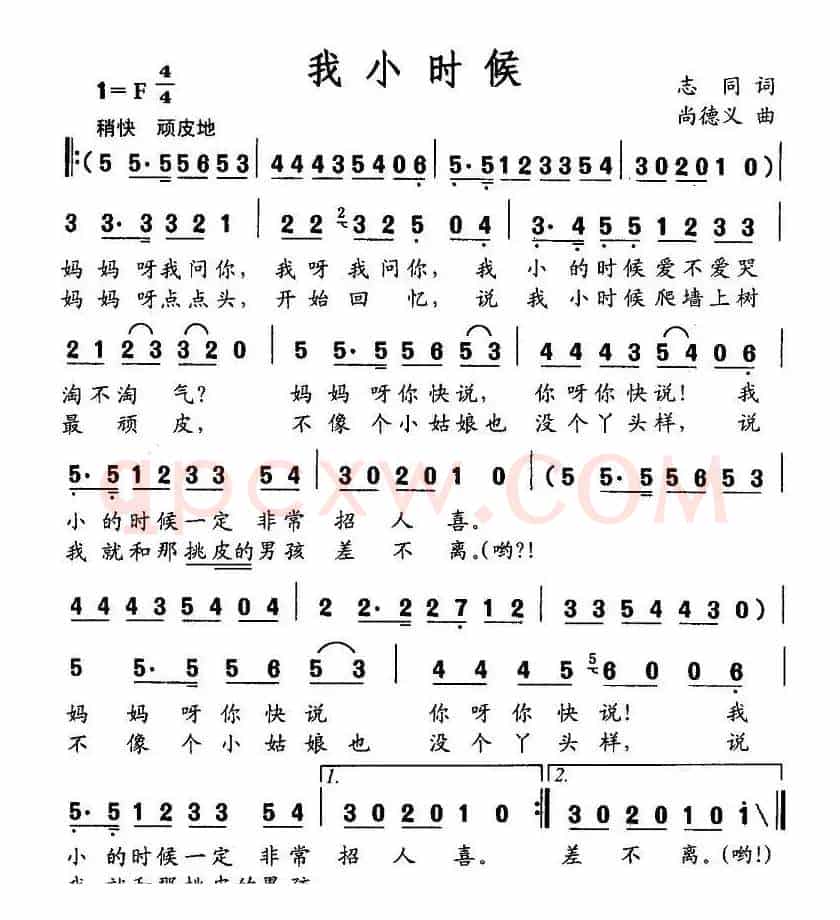 我小时候
1=F 4/4
志 同 词
尚德义 曲
稍快 顽皮地
(5 5·55653 44435406 5·5123354 302010)
3 3·3 3321 22 2 325 04 3·4551233
妈妈呀我问你,我呀我问你,我 小的时候爱不爱哭
妈妈呀点点头,开始回 忆,说 我小时候爬墙上树
2123320 5 5·55653 44435406
淘不淘 气? 妈妈呀你快说,你呀你快说!我
最 顽 皮, 不像个小姑娘也 没个丫头样,说
5·5123354 302010 (5 5·55653
小的时候一定 非常招人喜。
我就和那挑皮的男孩差不离。(哟?!
44435404 22·22712 33544430)
5 5·55653 4445 5 6006
妈妈呀你快说 你呀你快说! 我
不像个小姑娘也 没个丫头样, 说
1. 2.
5·5123354 302010 302010i
小的时候一定 非常招人喜。 差不离。(哟!)
qpcxw.COM